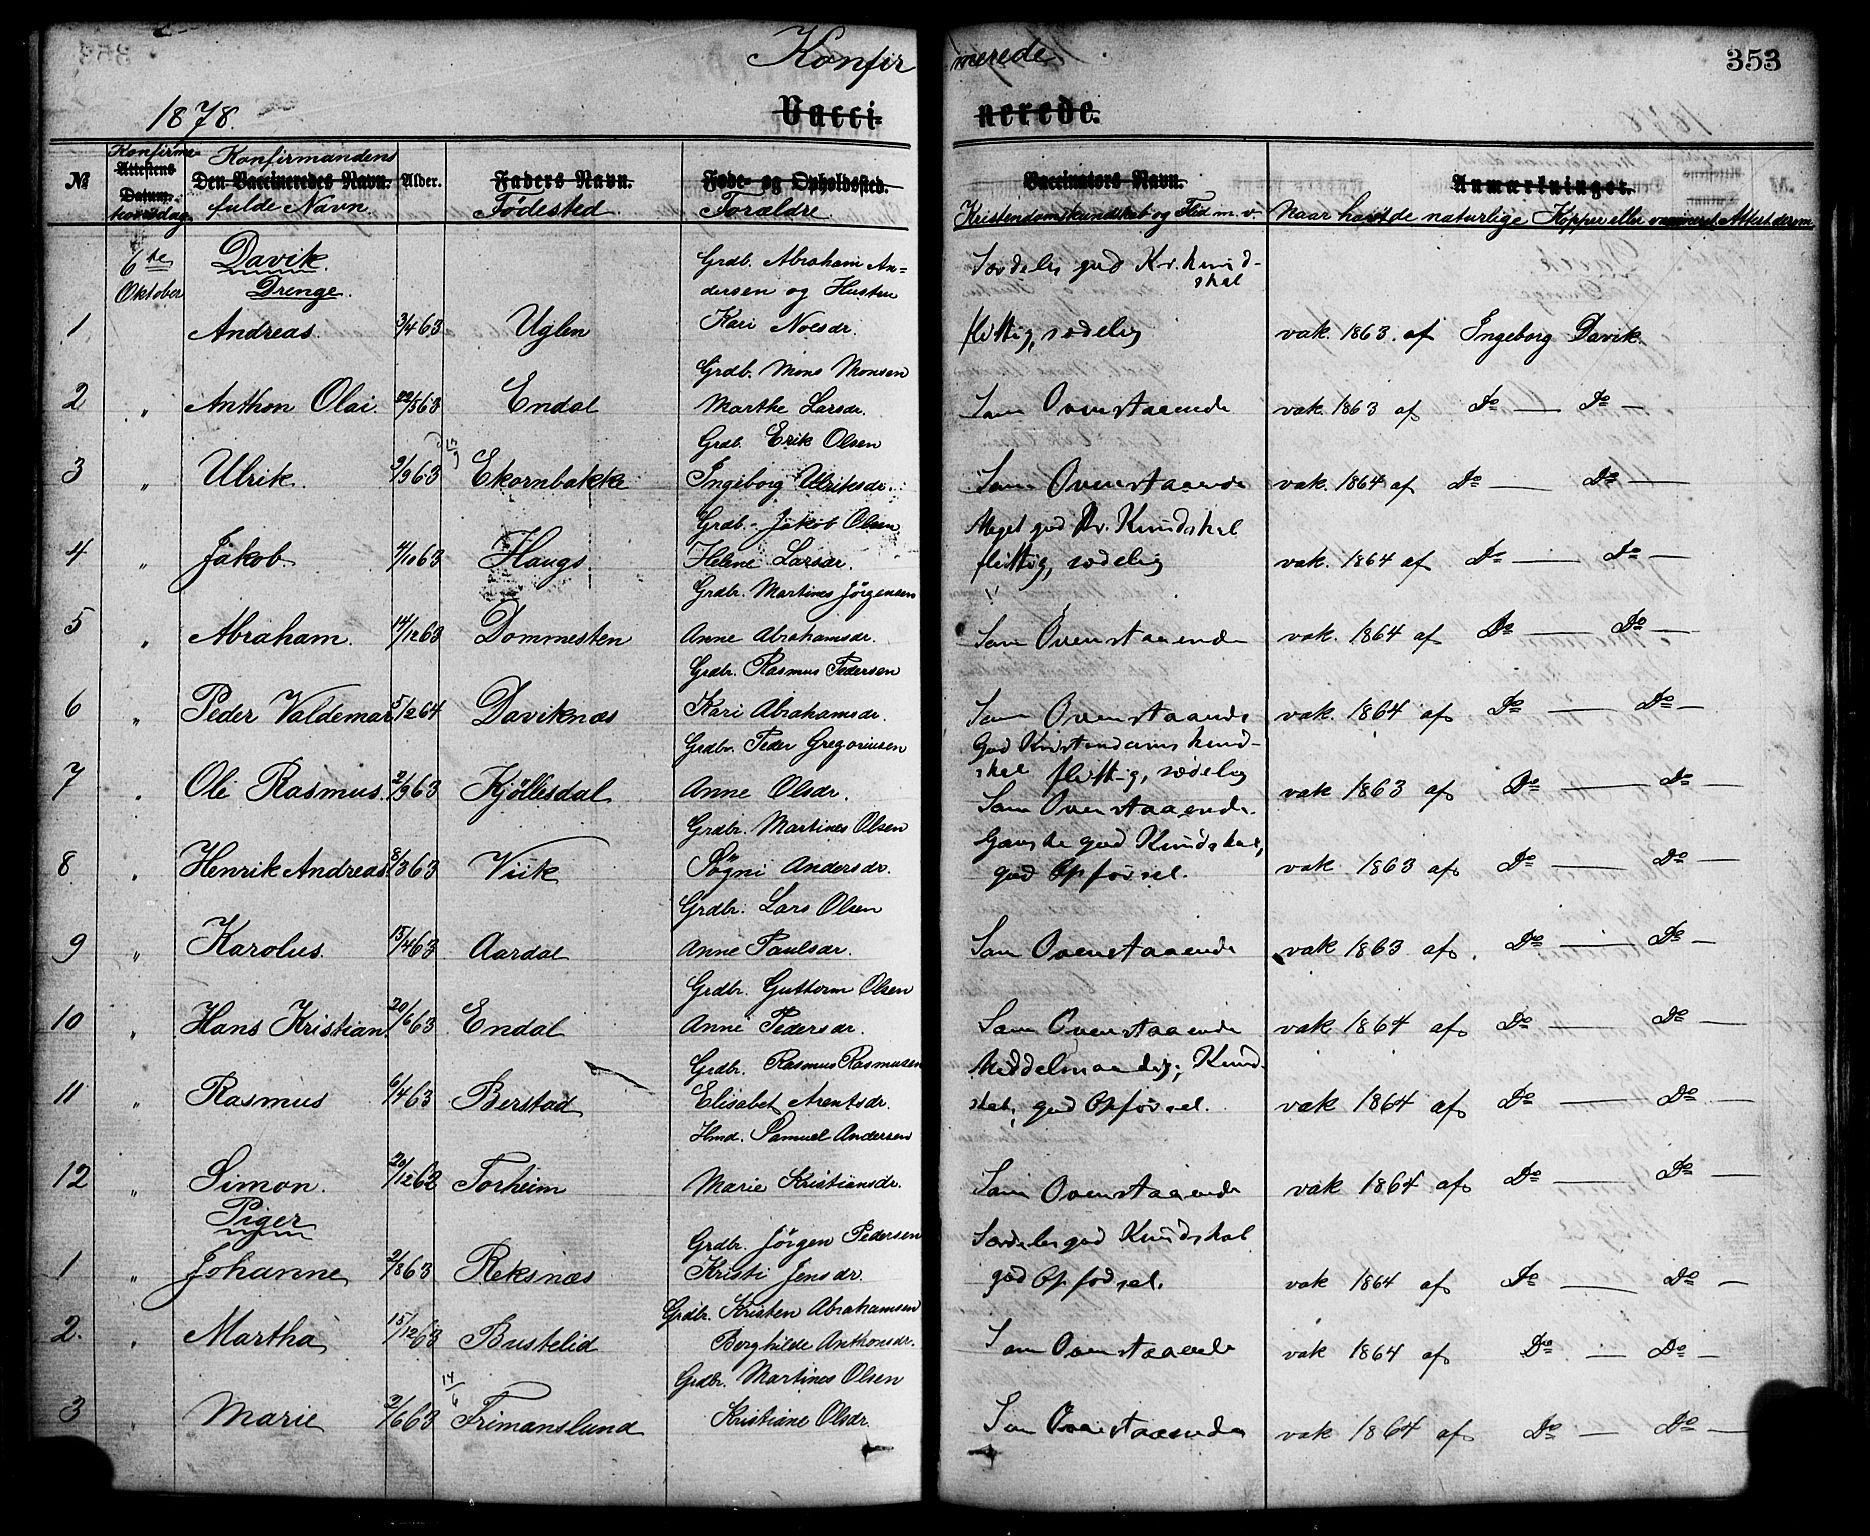 Konfirmerede
353
1878.
Vaccinerede.
Konfirma-
Konfirmandens
№ Attestens Datum. Den Vaccineredes Navn. Alder. Faders Navn. Føde- og Opholdssted. Vaccinators Navn. Anmærkninger.
tionsdag. fulde Navn. Födested Forældre Kristendomskundskab og Flid m. v. Naar havde naturlige Kopper eller vaccineret Attest derom
6te Davik. Grdb. Abraham An- Særdeles god Kr. kund-
Oktober Drenge. dersen og Hustru skab
1 Andreas. 3/4 63 Uglen Kari Noesdr. flittig, sædelig vak. 1863. af Ingeborg Davik.
Grdb. Mons Monsen
2 " Anthon Olai. 22/5 63 Endal Marthe Larsdr. Som Ovenstaaende vak. 1863 af Do — Do —
Grdb. Erik Olsen
3 " Ulrik. 9/9 63 Ekornbakke Ingeborg Ulriksdr. Som Ovenstaaende vak. 1864 af Do — Do —
Grdb. Jakob Olsen Meget god Kr. Kundskab
4 " Jakob 4/10 63 Haugs Helene Larsdr. flittig, sædelig vak. 1864 af Do — Do —
Grdbr. Martines Jørgensen
5 " Abraham. 14/12 63 Dommesten Anne Abrahamsdr. Som Ovenstaaende vak. 1864 af Do — Do —
Grdbr. Rasmus Pedersen
6 " Peder Valdemar 5/12 64 Daviknæs Kari Abrahamsdr. Som Ovenstaaende vak. 1864 af Do — Do —
Grdbr. Peder Gregoriusen God Kristendomskund-
skab flittig, sædelig
7 " Ole Rasmus. 2/9 63 Kjöllesdal Anne Olsdr. Som Ovenstaaende. vak 1863 af Do — Do —
Grdbr. Martines Olsen Ganske god Kundskab,
8 " Henrik Andreas. 8/3 63 Viik Søgni Andersdr. god Opførsel. vak 1863 af Do — Do —
Grdbr. Lars Olsen
9 " Karolus. 15/4 63 Aardal Anne Paulsdr. Som Ovenstaaende vak 1863 af Do — Do —
Grdbr. Guttorm Olsen
10 " Hans Kristian. 20/6 63 Endal Anne Pedersdr. Som Ovenstaaende vak 1864 af Do — Do —
Grdbr. Rasmus Rasmusen Middelmaadig Kund-
11 " Rasmus 6/4 63 Berstad Elisabet Arentsdr. skab, god Opførsel. vak 1864 af Do — Do —
Hmd. Samuel Andersen
12 " Simon. 20/12 62 Torheim Marie Kristiansdr. Som Ovenstaaende vak 1864 af Do — Do —
Piger
Grdbr. Jörgen Pedersen Særdeles god Kundskab
1 " Johanne 2/8 63 Reksnæs Kristi Jensdr. god Opførsel. vak 1864 af Do — Do —
Grdbr. Kristen Abrahamsen
2. " Martha 15/12 63 Bustelid Berghilde Anthonsdr. Som Ovenstaaende vak 1864 af Do — Do —
Grdbr. Martines Olsen
14/6
3 " Marie 2/6 63 Frimanslund Kristiane Olsdr. Som Ovenstaaende vak 1864 af Do — Do —